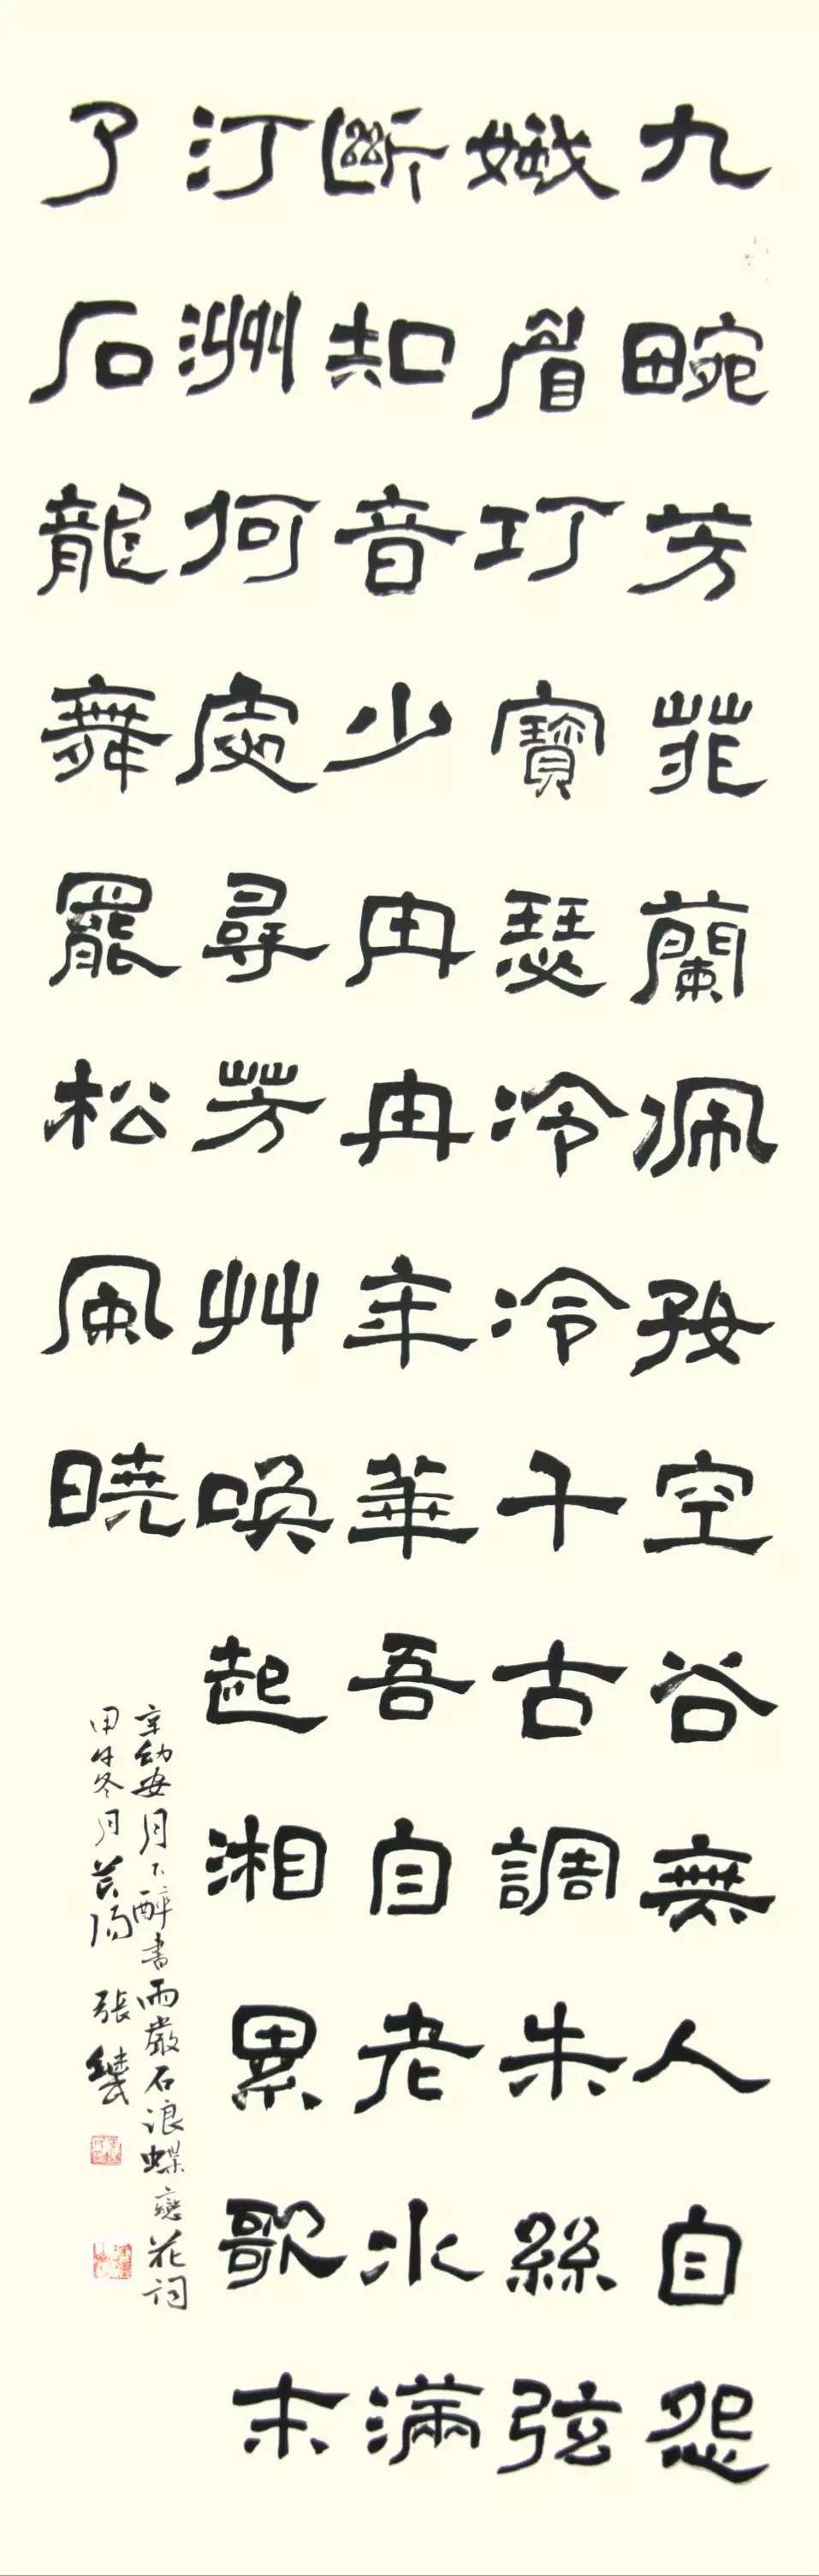 九畹芳菲蘭佩好空谷無人自怨
娥眉巧寶瑟冷冷千古調朱絲弦
斷知音少冉冉年華吾自老水滿
汀洲何處尋芳艸喚起湘累歌未
了石龍舞罷松風曉
辛幼安月下醉書雨巖石浪蝶戀花詞
甲午冬月 張